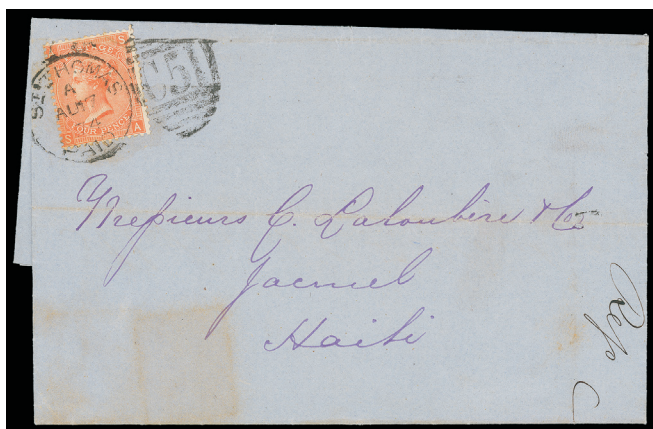 ST. THOMAS
A
AU 17
PAID
C51
S A
FOUR PENCE
Messieurs C. Laloubère & Co
Jacmel
Haiti